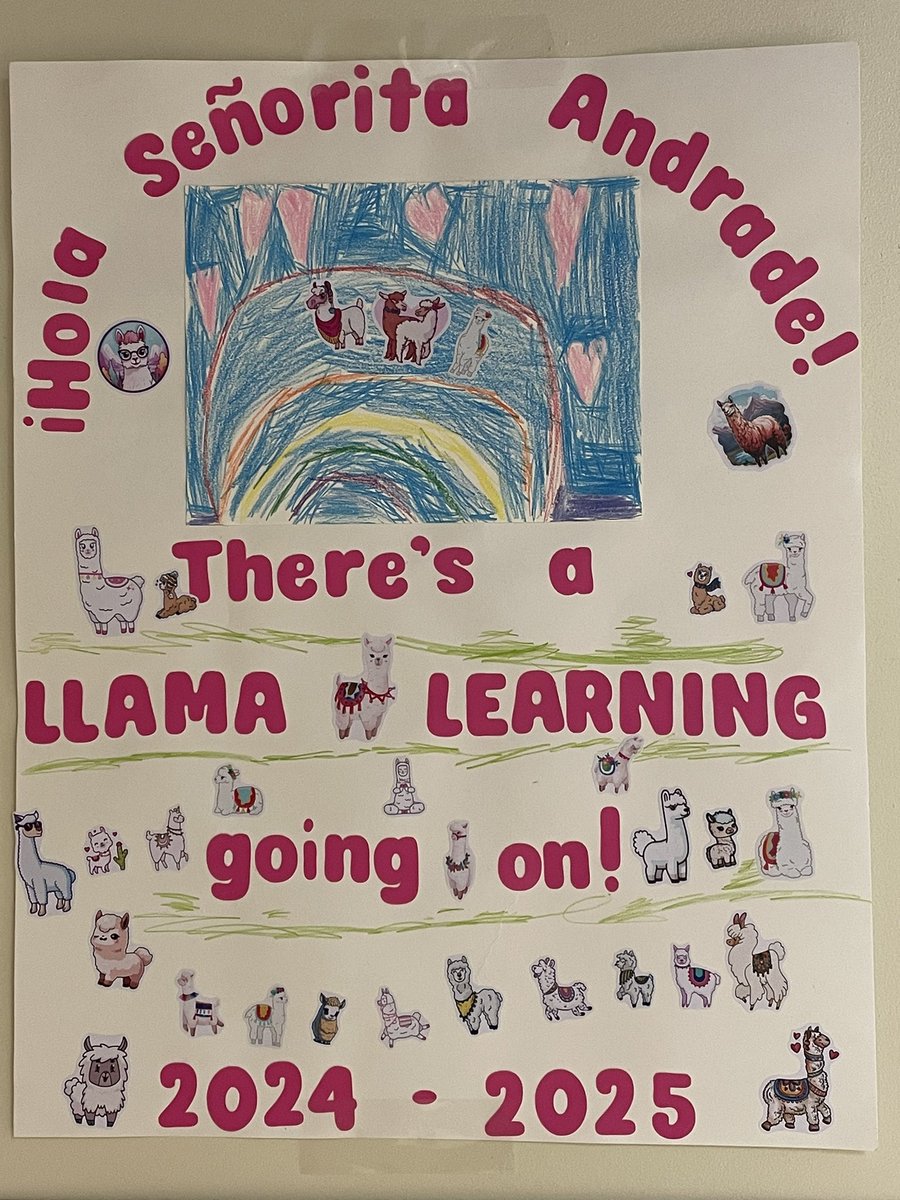 ¡Hola Señorita Andrade!
There's a
LLAMA LEARNING
going on!
2024 - 2025